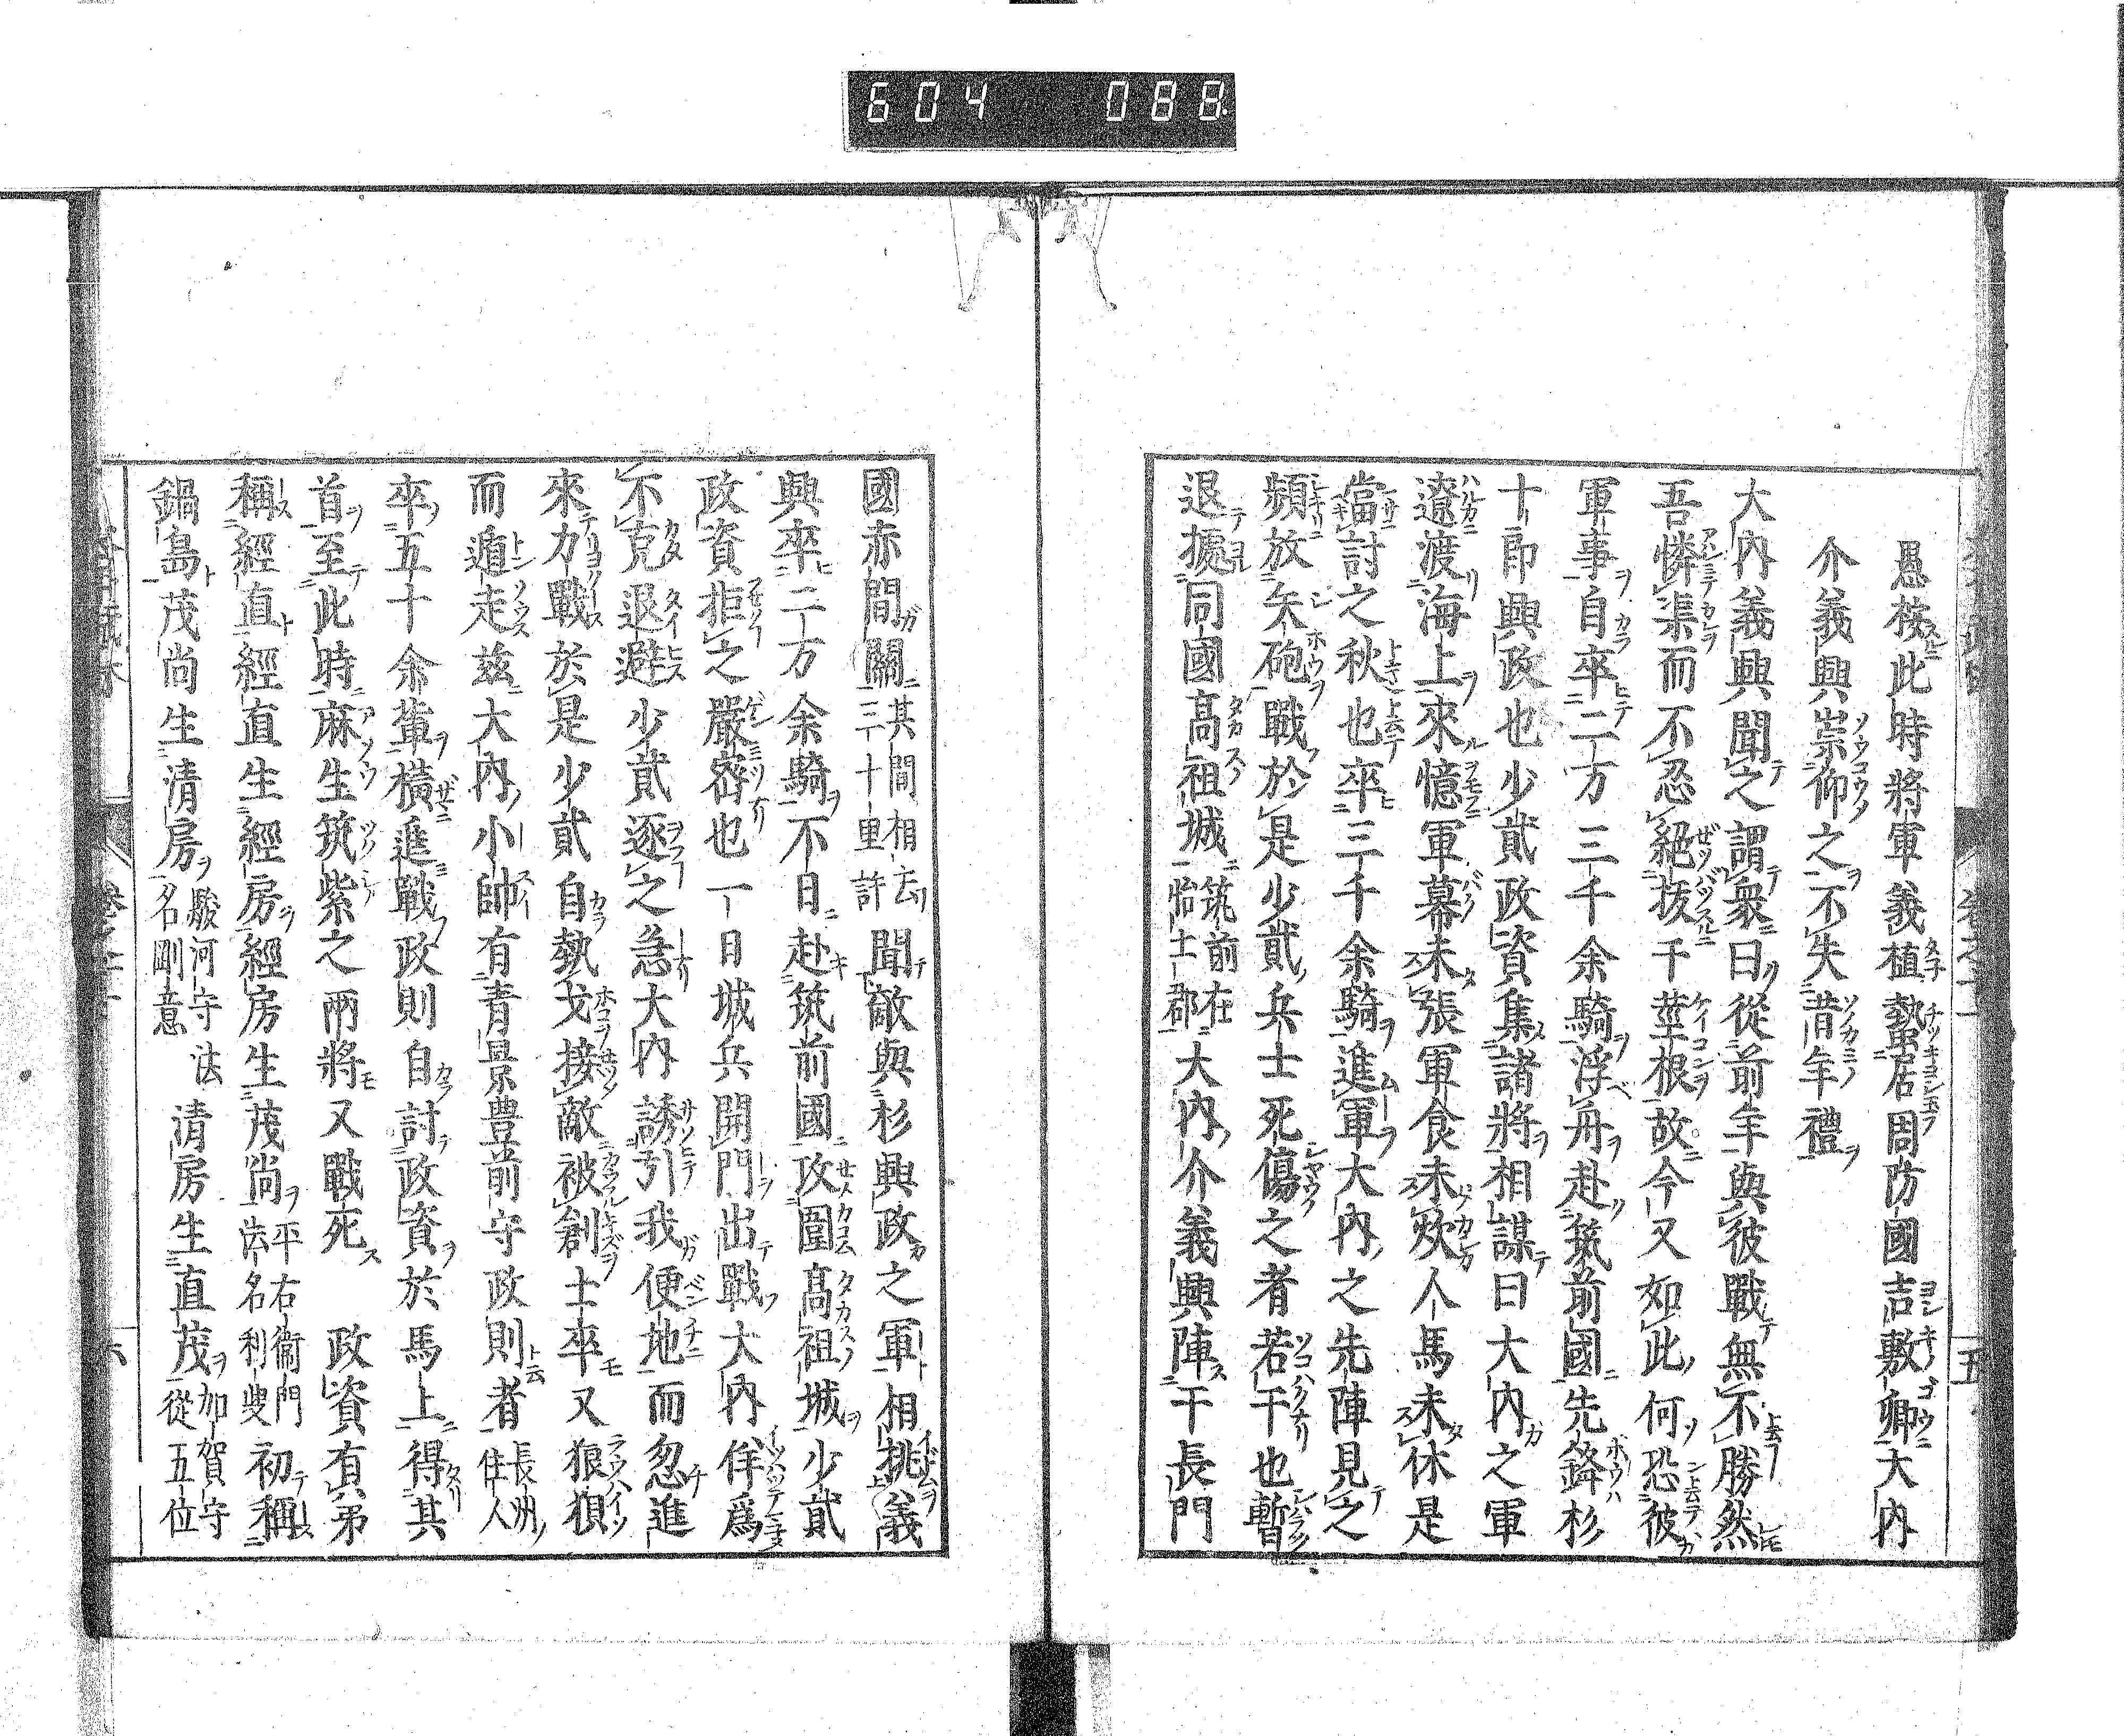 604 088
愚按此時將軍義植蟄居周防國吉敷卿大內
介義興崇仰之不失昔年禮
大內義興聞之謂衆曰從前年與彼戰無不勝然
吾憐渠而不忍絕拔于莖根故今又如此何恐彼
軍事自卒二万三千余騎浮舟赴筑前國先鋒杉
十郎興政也少貳政資集諸將相謀曰大內之軍
遼渡海上來憶軍幕未張軍食未炊人馬未休是
當討之秋也卒三千余騎進軍大內之先陣見之
頻放矢砲戰於是少貳兵士死傷之者若干也暫
退據同國髙祖城筑前在怡土郡大內介義興陣于長門
五
國赤間關其間相去三十里許聞敵與杉興政之軍相挑義
興卒二万余騎不日赴筑前國攻圍髙祖城少貳
政資拒之嚴密也一日城兵開門出戰大內佯爲
不克退避少貳逐之急大內誘引我便地而忽進
來力戰於是少貳自執戈接敵被創士卒又狼狽
而遁走茲大內小帥有青景豊前守政則者長州住人
卒五十余輩橫進戰政則自討政資於馬上得其
首至此時麻生筑紫之兩將又戰死 政資有弟
稱經直經直生經房經房生茂尚平右衞門法名利叟初稱
鍋島茂尚生清房駿河守法名剛意清房生直茂加賀守從五位
六